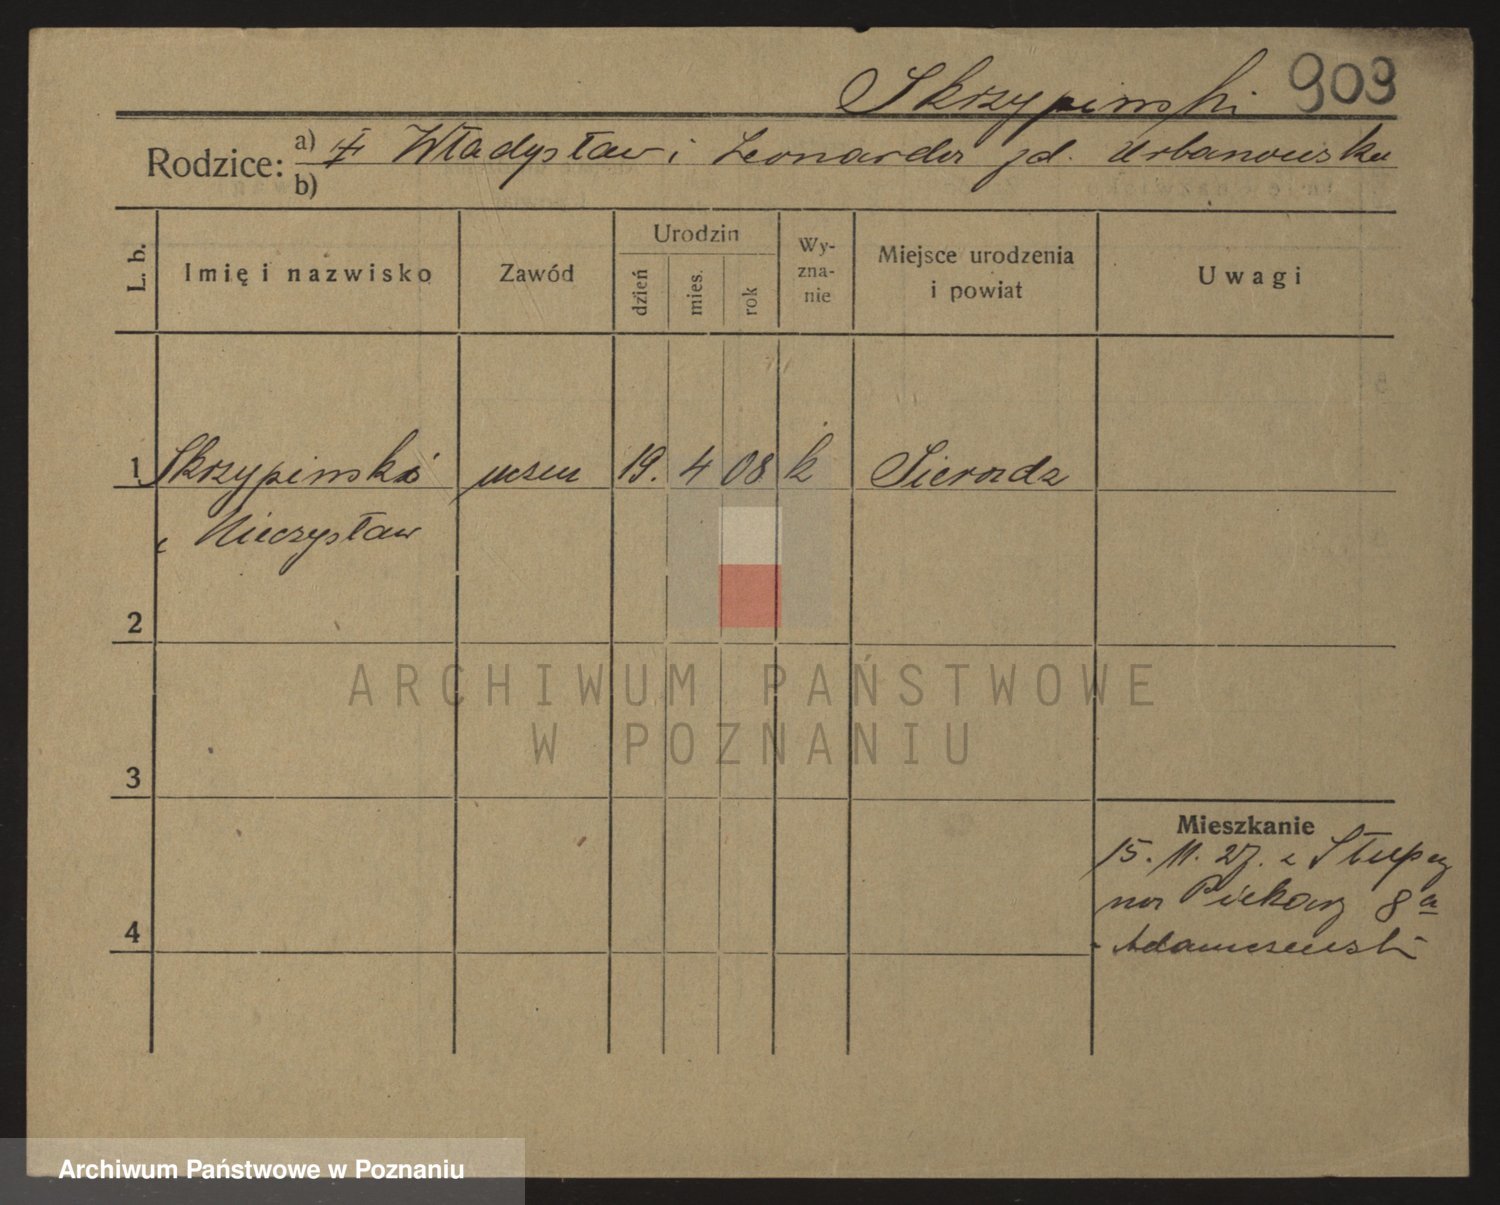 Skrzypinski 903
Rodzice: a) I Władysław i Leonarda zd. Urbanowska
b)
L. b.
Imię i nazwisko
Zawód
Urodzin
dzień
mies.
rok
Wy-
zna-
nie
Miejsce urodzenia
i powiat
Uwagi
1 Skrzypinski 19. 4 08 k Sieradz
Mieczysław
2
ARCHIWUM PAŃSTWOWE
W POZNANIU
3
Mieszkanie
15. 11. 27. z Słupcy
na Piekary 8a
4
Adamczewski
Archiwum Państwowe w Poznaniu